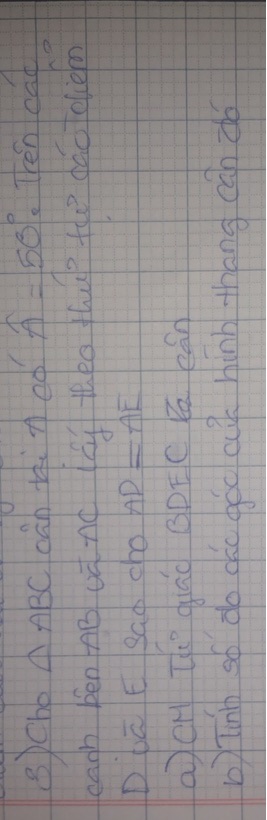 3) Cho Δ ABC cân tại A có Â = 50°. Trên các
cạnh bên AB và AC lấy theo thứ tự các điểm
D và E sao cho AD = AE
a) CM Tứ giác BDEC là cân
b) Tính số đo các góc của hình thang cân đó